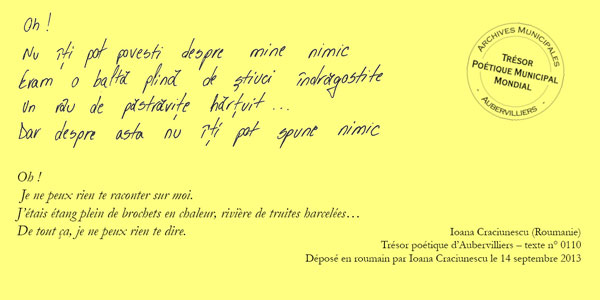 Oh !
Nu îți pot povesti despre mine nimic
Eram o baltă plină de știuci îndrăgostite
Un râu de păstrăvițe hărțuit ...
Dar despre asta nu îți pot spune nimic
ARCHIVES MUNICIPALES
TRÉSOR
POÉTIQUE MUNICIPAL
MONDIAL
· AUBERVILLIERS ·
Oh !
Je ne peux rien te raconter sur moi.
J'étais étang plein de brochets en chaleur, rivière de truites harcelées…
De tout ça, je ne peux rien te dire.
Ioana Craciunescu (Roumanie)
Trésor poétique d'Aubervilliers – texte n° 0110
Déposé en roumain par Ioana Craciunescu le 14 septembre 2013